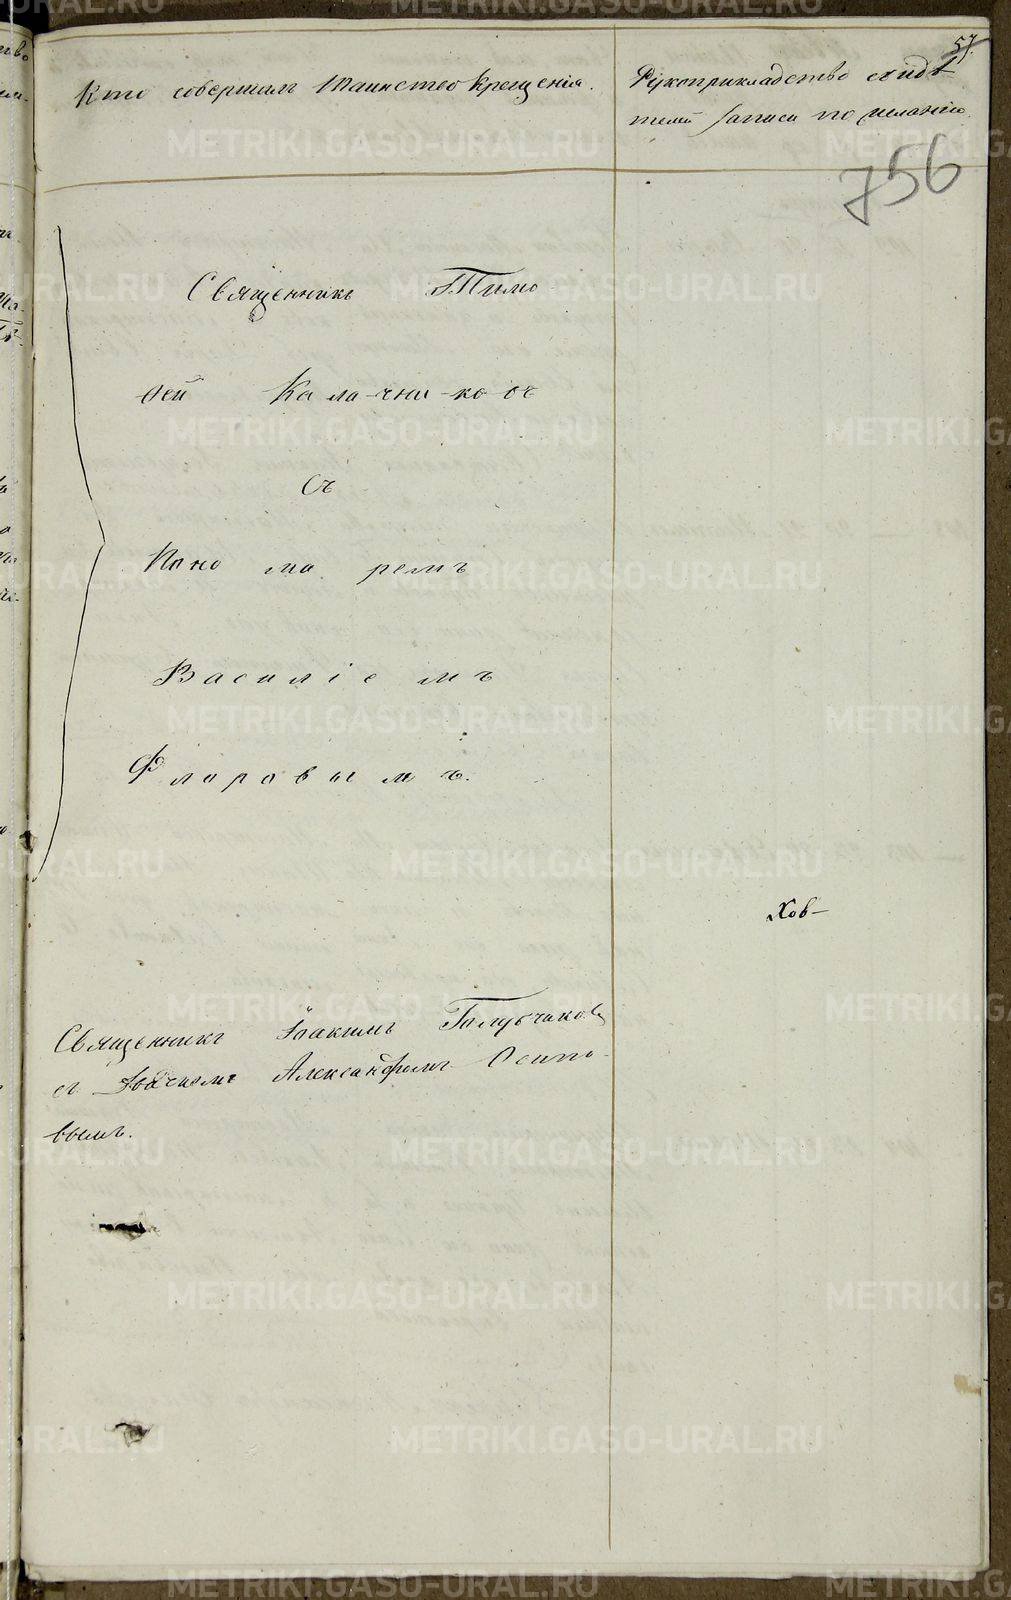 57.
Кто совершалъ таинство крещенія.
Рукоприкладство свидѣ
телей записи по желанію.
756
Священникъ Тимо
ѳей Кала-чни-ко-въ
Съ
Поно ма ремъ
Василіемъ
Флоровымъ.
Хов-
Священникъ Іоакимъ Голубчиковъ
съ Дьячкомъ Александромъ Осипо-
вымъ.
METRIKI.GASO-URAL.RU